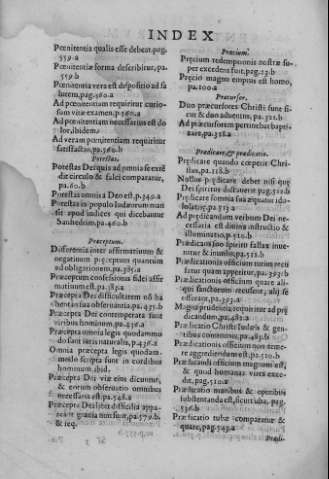 INDEX
Pœnitentia qualis esse debeat, pag.
559.a
Pœnitentiæ forma describitur, pa.
559.b
Pœnitentia vera est dispositio ad sa
lutem, pag.560.a
Ad pœnitentiam requiritur curio-
sum vitæ examen.p.560.a
Ad pœnitentiam necessarius est do-
lor, ibidem.
Ad veram pœnitentiam requiritur
satisfactio, pa.569.b
Potestas.
Potestas Dei quis ad omnia se exten
dit circulo & falci comparatur,
pa.60.b
Potestas omnis a Deo est, p.340.a
Potestas in populo Iudæorum man
sit apud iudices qui dicebantur
Sanhedrim.pa.460.b
Præceptum.
Differentia inter affirmatiuum &
negatiuum præceptum quantum
ad obligationem, p.385.a
Præceptum confessionis fidei affir
matiuum est.pa.385.a
Præcepta Dei difficultatem nō ha
bent in sua obseruantia.pa.435.b
Præcepta Dei contemperata sunt
viribus hominum.pa.436.a
Præcepta omnia legis quodammo
do sunt iuris naturalis, p.436.a
Omnia præcepta legis quodam-
modo scripta sunt in cordibus
hominum.ibid.
Præcepta Dei viæ eius dicuntur,
& eorum obseruatio omnibus
necessaria est.pa.548.a
Præcepta Dei licet difficilia appa-
reāt gratia non sunt, pa.579.b.
& seq.
Precium.
Precium redemptionis nostræ su-
per excedens fuit, pag.23.b
Precio magno emptus est homo,
pa.100.a
Præcursor.
Duo præcursores Christi sunt si-
cut & duo aduentus, pa.321.b
Ad præcursorem pertinebat bapti-
zare, pa.328.a
Prædicare, & prædicatio.
Prædicare quando cœperit Chri-
stus, pa.118.b
Nullus prædicare debet nisi quē
Dei spiritus doctauerit pag.511.b
Prædicare omnia sua æquatur ido-
lolatriæ, pa.513.a
Ad prædicandum verbum Dei ne-
cessaria est diuina instructio &
illuminatio, p.510.b
Prædicatio sine spiritu factas inue-
nitur & inutilis, pa.512.b
Prædicationis officium turius reti-
netur quam appetitur, pa.393.b
Prædicationis officium quare ali-
qui sanctorum recusant, alij se
offerant, pa.393.a
Magna prudentia requiritur ad præ
dicandum, pa.483.a
Prædicatio Christi Iudæis & gen-
tibus communis, pa.485.b
Prædicationis officium non teme-
re aggrediendum est.pa.510.b
Prædicandi officium magnum est,
& quod humanas vires exce-
dit, pag.510.a
Prædicatio manibus & operibus
substentanda est, sicut tuba, pag.
536.b
Prædicatio tubæ comparatur &
quare, pag.549.a
Prædi-